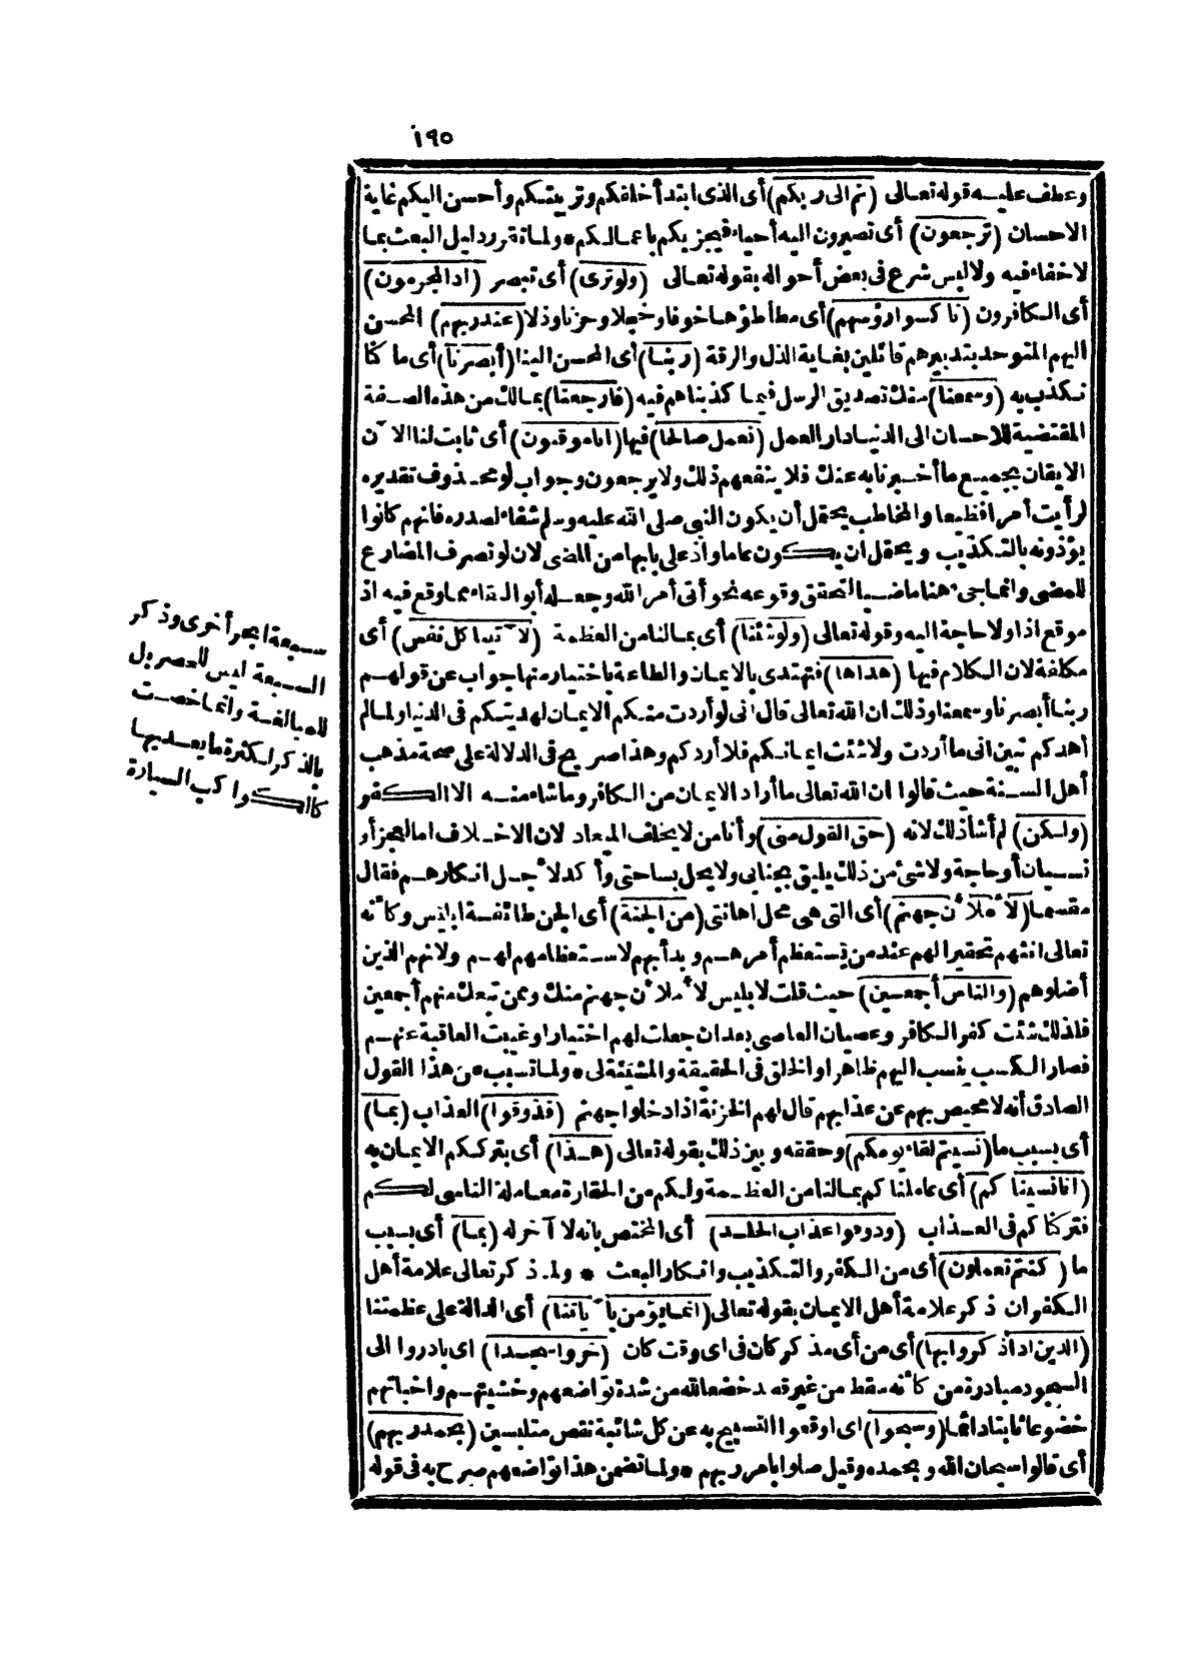 ١٩٥
وعطف عليه قوله تعالى (ثم الى ربكم) أى الذى ابتدأ خلقكم وتربيتكم وأحسن اليكم غاية
الاحسان (ترجعون) أى تصيرون اليه أحياء فيجزيكم باعمالكم * ولما تقرر دليل البعث بما
لا خفاء فيه ولا لبس شرع فى بعض أحواله بقوله تعالى (ولو ترى) أى تبصر (اذ المجرمون)
أى الكافرون (ناكسوا رؤسهم) أى مطأطؤها خوفا وخجلا وحزنا وذلا (عند ربهم) المحسن
اليهم المتوحد بتدبيرهم قائلين بغاية الذل والرقة (ربنا) أى المحسن الينا (أبصرنا) أى ما كنا
نكذب به (وسمعنا) منك تصديق الرسل فيما كذبناهم فيه (فارجعنا) بمالك من هذه الصفة
المقتضية للاحسان الى الدنيا دار العمل (نعمل صالحا) فيها (انا موقنون) أى ثابت لنا الآن
الايقان بجميع ما أخبرنا به عنك فلا ينفعهم ذلك ولا يرجعون وجواب لو محذوف تقديره
لرأيت أمرا فظيعا والمخاطب يحتمل أن يكون النبى صلى الله عليه وسلم شفاء لصدره فانهم كانوا
يؤذونه بالتكذيب ويحتمل ان يكون عاما واذ على بابها من المضى لان لو تصرف المضارع
للمضى وانما جىء هنا ماضيا لتحقق وقوعه نحو أتى أمر الله وجعله أبو البقاء مما وقع فيه اذ
موقع اذا ولا حاجة اليه وقوله تعالى (ولو شئنا) أى بمالنا من العظمة (لآتينا كل نفس) أى
مكلفة لان الكلام فيها (هداها) فتهتدى بالايمان والطاعة باختيار منها جواب عن قولهم
ربنا أبصرنا وسمعنا وذلك ان الله تعالى قال انى لو أردت منكم الايمان لهديتكم فى الدنيا ولما لم
أهدكم تبين انى ما أردت ولا شئت ايمانكم فلا أردكم وهذا صريح فى الدلالة على صحة مذهب
أهل السنة حيث قالوا ان الله تعالى ما أراد الايمان من الكافر وما شاء منه الا الكفر
(ولكن) لم أشأ ذلك لانه (حق القول منى) وأنا من لا يخلف الميعاد لان الاخلاف اما لعجز أو
نسيان أو حاجة ولا شئ من ذلك يليق بجنابى ولا يحل بساحتى وأكد لاجل انكارهم فقال
مقسما (لأملأن جهنم) أى التى هى محل اهانتى (من الجنة) أى الجن طائفة ابليس وكأنه
تعالى انثهم تحقيرا لهم عند من يستعظم أمرهم وبدأ بهم لاستعظامهم لهم ولانهم الذين
أضلوهم (والناس أجمعين) حيث قلت لابليس لأملأن جهنم منك وممن تبعك منهم أجمعين
فلذلك شئت كفر الكافر وعصيان العاصى بعد ان جعلت لهم اختيارا وغيبت العاقبة عنهم
فصار الكسب ينسب اليهم ظاهرا والخلق فى الحقيقة والمشيئة لى * ولما تسبب عن هذا القول
الصادق أنه لا محيص بهم عن عذابهم قال لهم الخزنة اذا دخلوا جهنم (فذوقوا) العذاب (بما)
أى بسبب ما (نسيتم لقاء يومكم) وحققه وبين ذلك بقوله تعالى (هذا) أى بترككم الايمان به
(انا نسيناكم) أى عاملناكم بمالنا من العظمة ولكم من الحقارة معاملة الناسى لكم
فتركناكم فى العذاب (وذوقوا عذاب الخلد) أى المختص بانه لا آخر له (بما) أى بسبب
ما (كنتم تعملون) أى من الكفر والتكذيب وانكار البعث * ولما ذكر تعالى علامة أهل
الكفران ذكر علامة أهل الايمان بقوله تعالى (انما يؤمن بآياتنا) أى الدالة على عظمتنا
(الذين اذا ذكروا بها) أى من أى مذكر كان فى اى وقت كان (خروا سجدا) اى بادروا الى
السجود مبادرة من كأنه سقط من غير قصد خضعا لله من شدة تواضعهم وخشيتهم واخباتهم
خضوعا ثابتا دائما (وسبحوا) اى اوقعوا التسبيح به عن كل شائبة نقص متلبسين (بحمد ربهم)
أى قالوا سبحان الله وبحمده وقيل صلوا بامر ربهم * ولما تضمن هذا تواضعهم صرح به فى قوله
سبعة ابحر أخرى وذكر
السبعة ليس للحصر بل
للمبالغة وانما خصت
بالذكر لكثرة ما يعد بها
كالكواكب السيارة